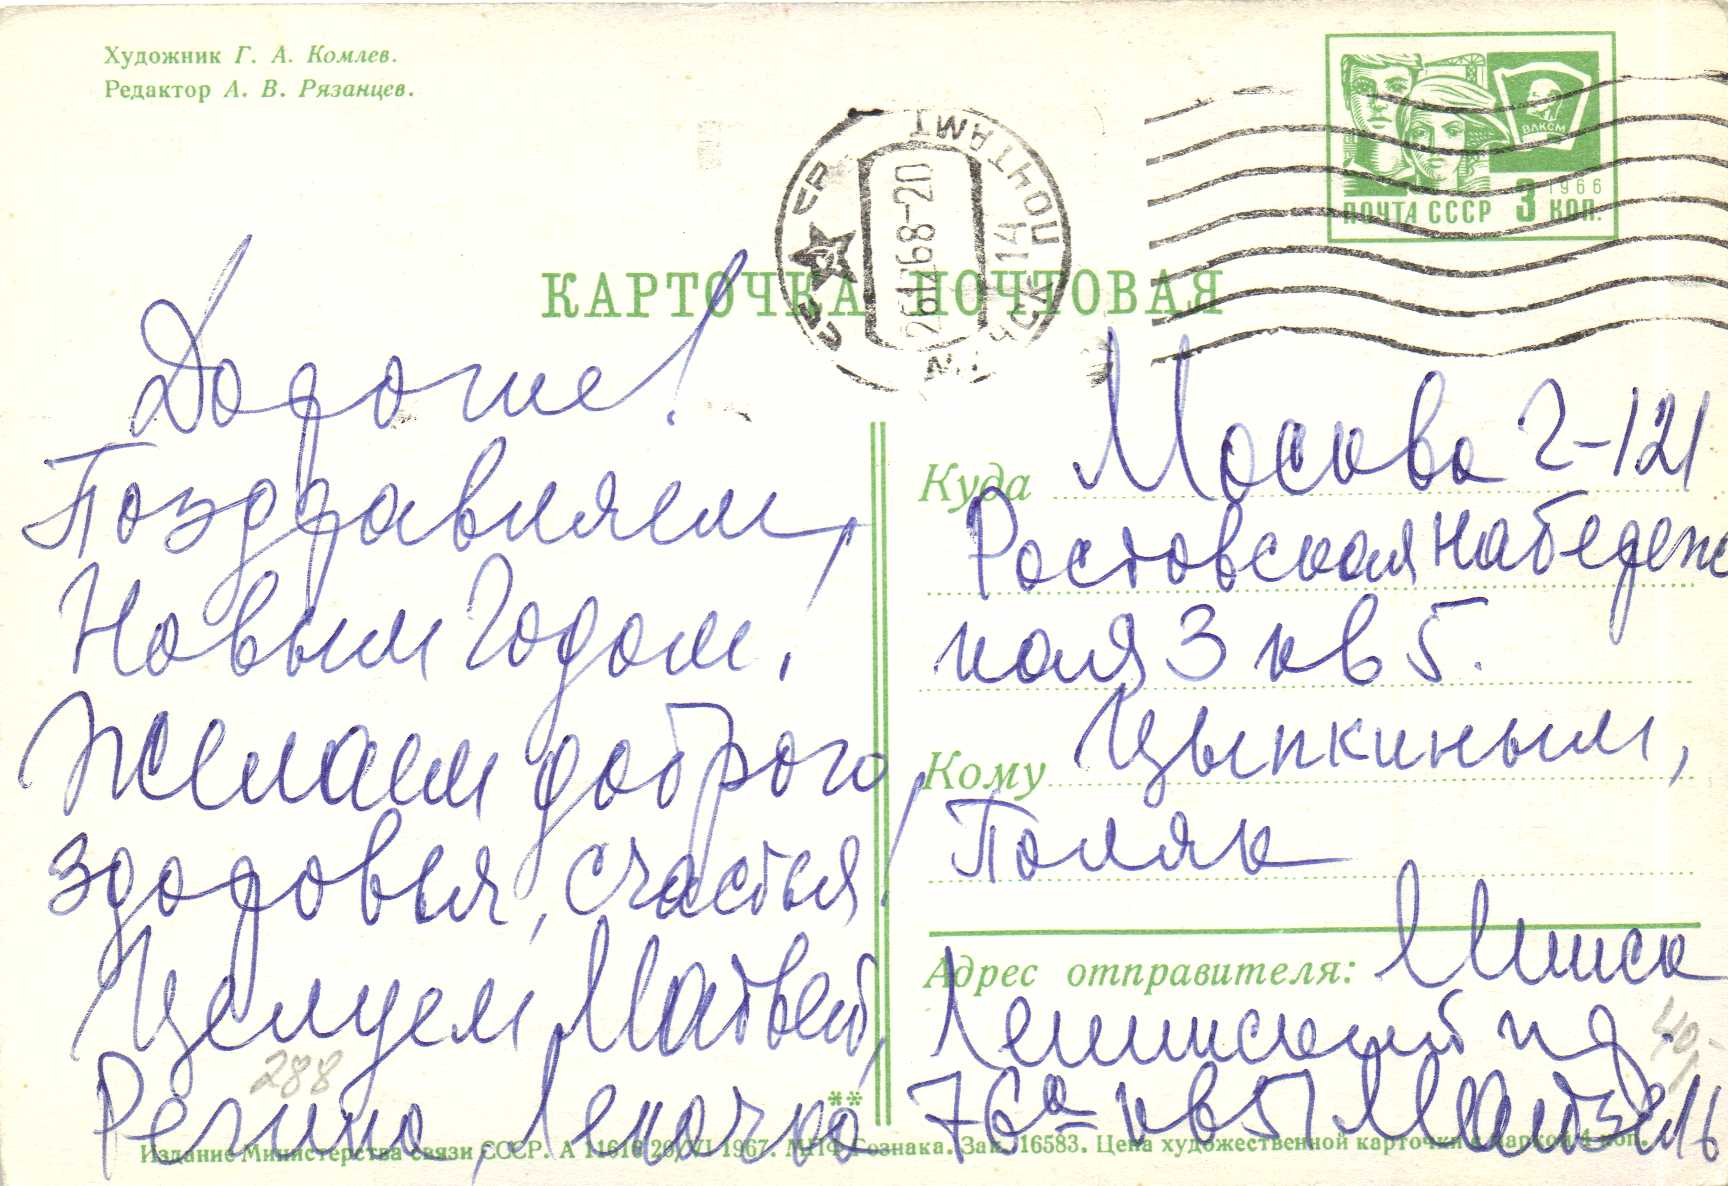 Художник Г. А. Комлев.
Редактор А. В. Рязанцев.
ВЛКСМ
1966
ПОЧТА СССР 3 КОП.
МИНСК ПОЧТАМТ
СССР
261268-20
14
КАРТОЧКА ПОЧТОВАЯ
Дорогие!
Поздравляем,
Новым Годом,
Желаем доброго
здоровья, счастья!
Целуем, Матвей,
Регина, Леночка
288
Куда Москва Г-121
Ростовская набереж
ная 3 кв 5.
Кому Цыпкиным,
Поляк
Адрес отправителя: Минск
Ленинский пр.
76а кв 51 Мантзель
40,-
**
Издание Министерства связи СССР. А 11616 20/VI 1967. МПФ Гознака. Зак. 16583. Цена художественной карточки с маркой 4 коп.